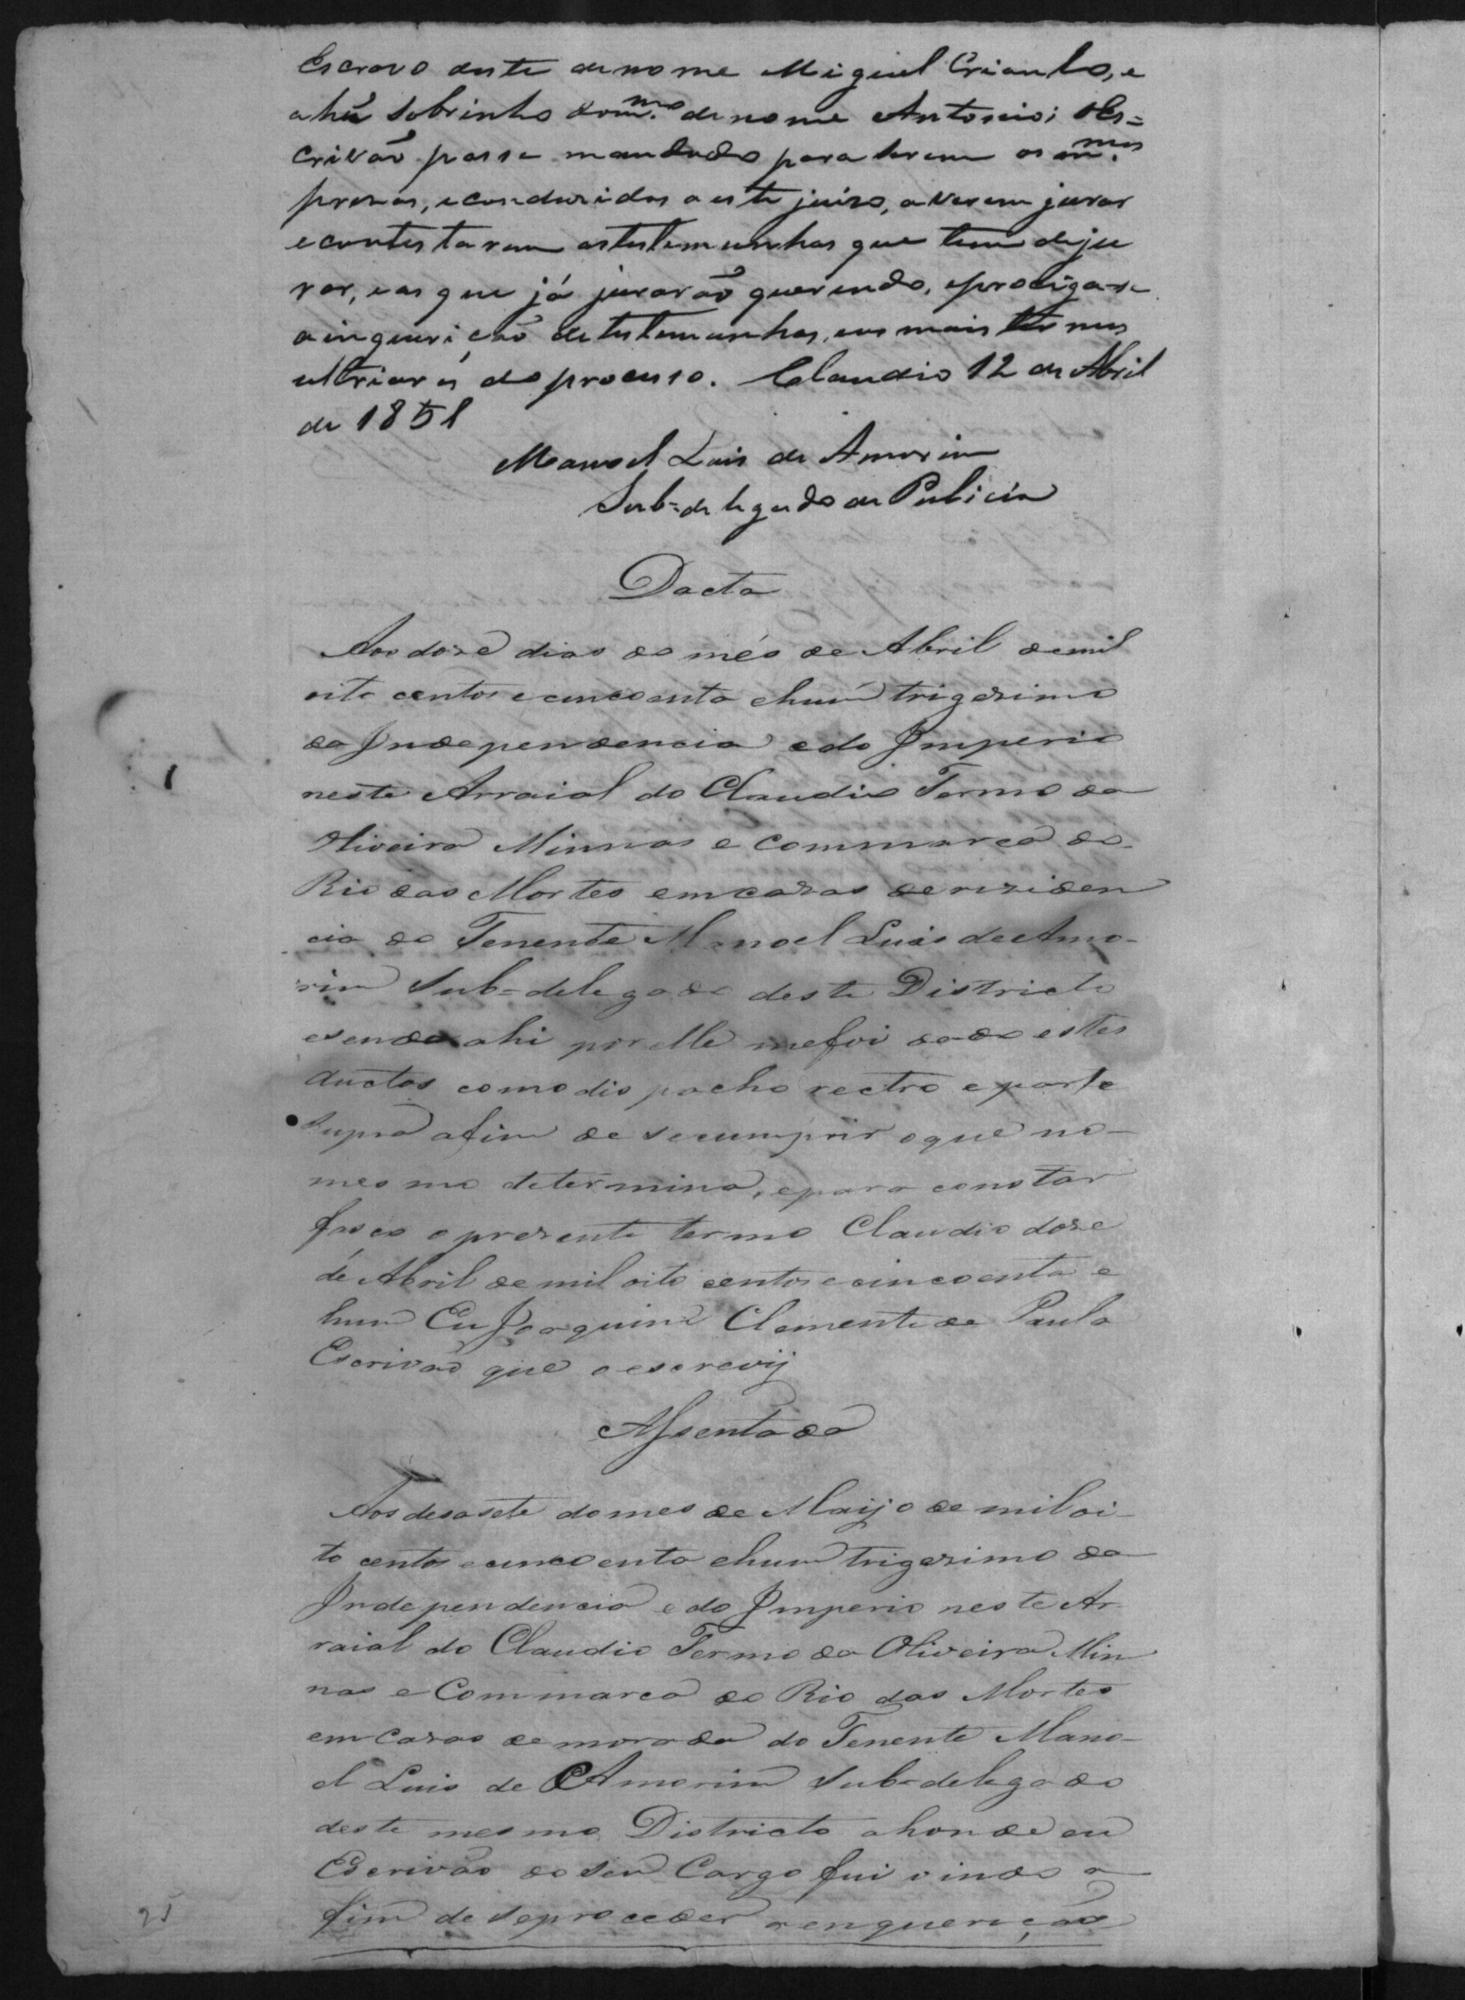 Escravo deste de nome Miguel Crioulo, e
a hũ sobrinho do m.mo de nome Antonio; o Es=
crivão passe mandado para serem os m.mos
prezos, e conduzidos a este juizo, a verem jurar
e contestarem as testemunhas que tem de ju
rar, e as que já jurarão querendo, e prociga-se
a inquirição de testemunhas, e os mais termos
ultriores do processo. Claudio 12 de Abril
de 1851
Manoel Luis de Amorim
Sub=delegado de Policia
Dacta
Aos doze dias do mês de Abril de mil
oito centos e cincoenta e hum trigezimo
da Independencia e do Imperio
neste Arraial do Claudio Termo da
Oliveira Minnas e Commarca do
Rio das Mortes em cazas de reziden
cia do Tenente Manoel Luis de Amo-
rim Sub=delegado deste Districto
e sendo ahi por elle me foi dado estes
auctos com o dispacho rectro e parte
supra afim de se cumprir o que no
mesmo determina, e para constar
faço o prezente termo Claudio doze
de Abril de mil oito centos e cincoenta e
hum Eu Joaquim Clemente de Paula
Escrivão que o escrevij
Assentada
Aos desasete do mes de Maijo de mil oi-
to centos e cincoenta e hum trigezimo da
Independencia e do Imperio neste Ar
raial do Claudio Termo da Oliveira Min
nas e Commarca do Rio das Mortes
em cazas de morada do Tenente Mano-
el Luis de Amorim Sub-delegado
deste mesmo Districto ahonde eu
Escrivão do seu Cargo fui vindo a
fim de se proceder a enquerição
25